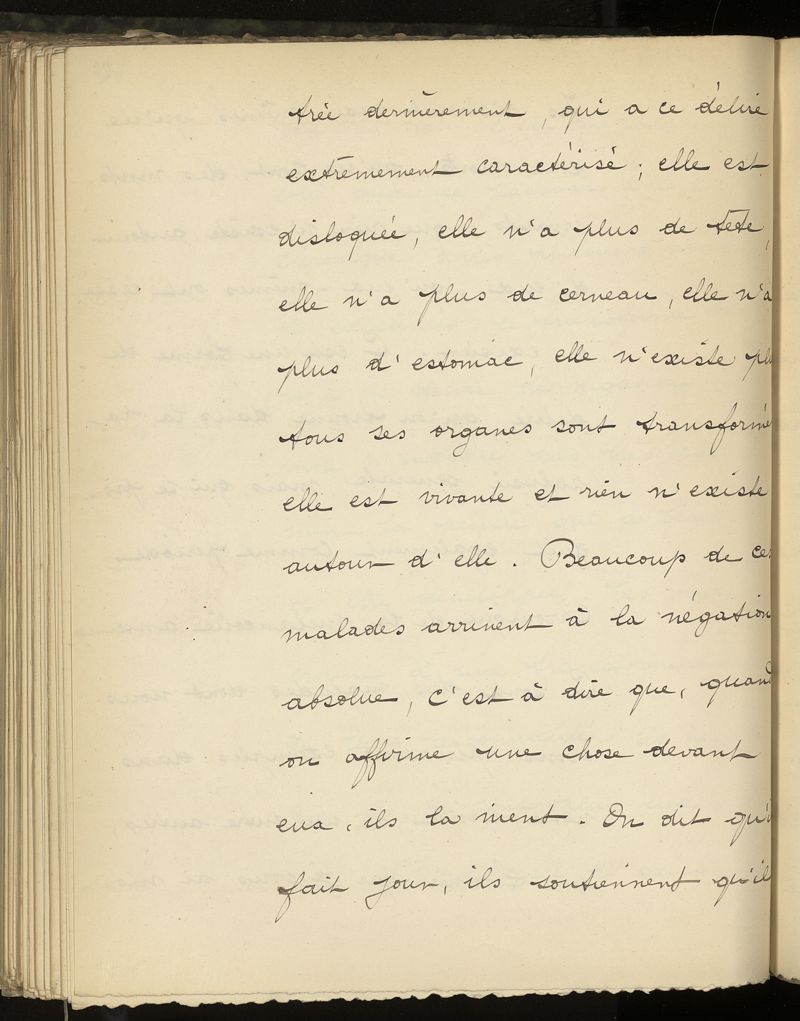 trée dernièrement, qui a ce délire
extrêmement caractérisé ; elle est
disloquée, elle n'a plus de tête,
elle n'a plus de cerveau, elle n'a
plus d'estomac, elle n'existe plu
tous ses organes sont transformé
elle est vivante et rien n'existe
autour d'elle. Beaucoup de ces
malades arrivent à la négation
absolue, c'est à dire que, quand
on affirme une chose devant
eux, ils la nient. On dit qu'i
fait jour, ils soutiennent qu'il